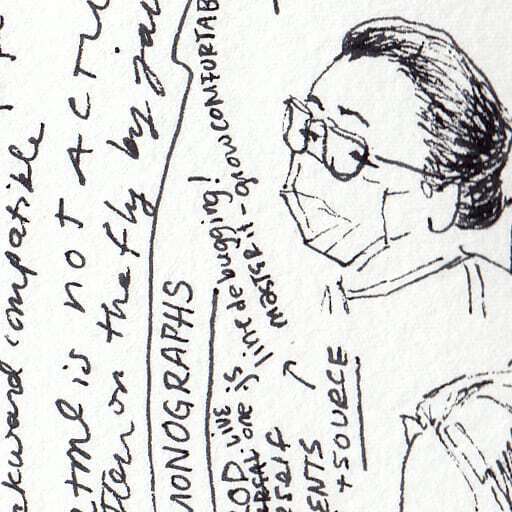 kward compatible
tml is NOT ACTU
tten on the fly by
MONOGRAPHS
OD LIVE
one is line debugging!
it - grow COMFORTAB
ENTS
+ SOURCE